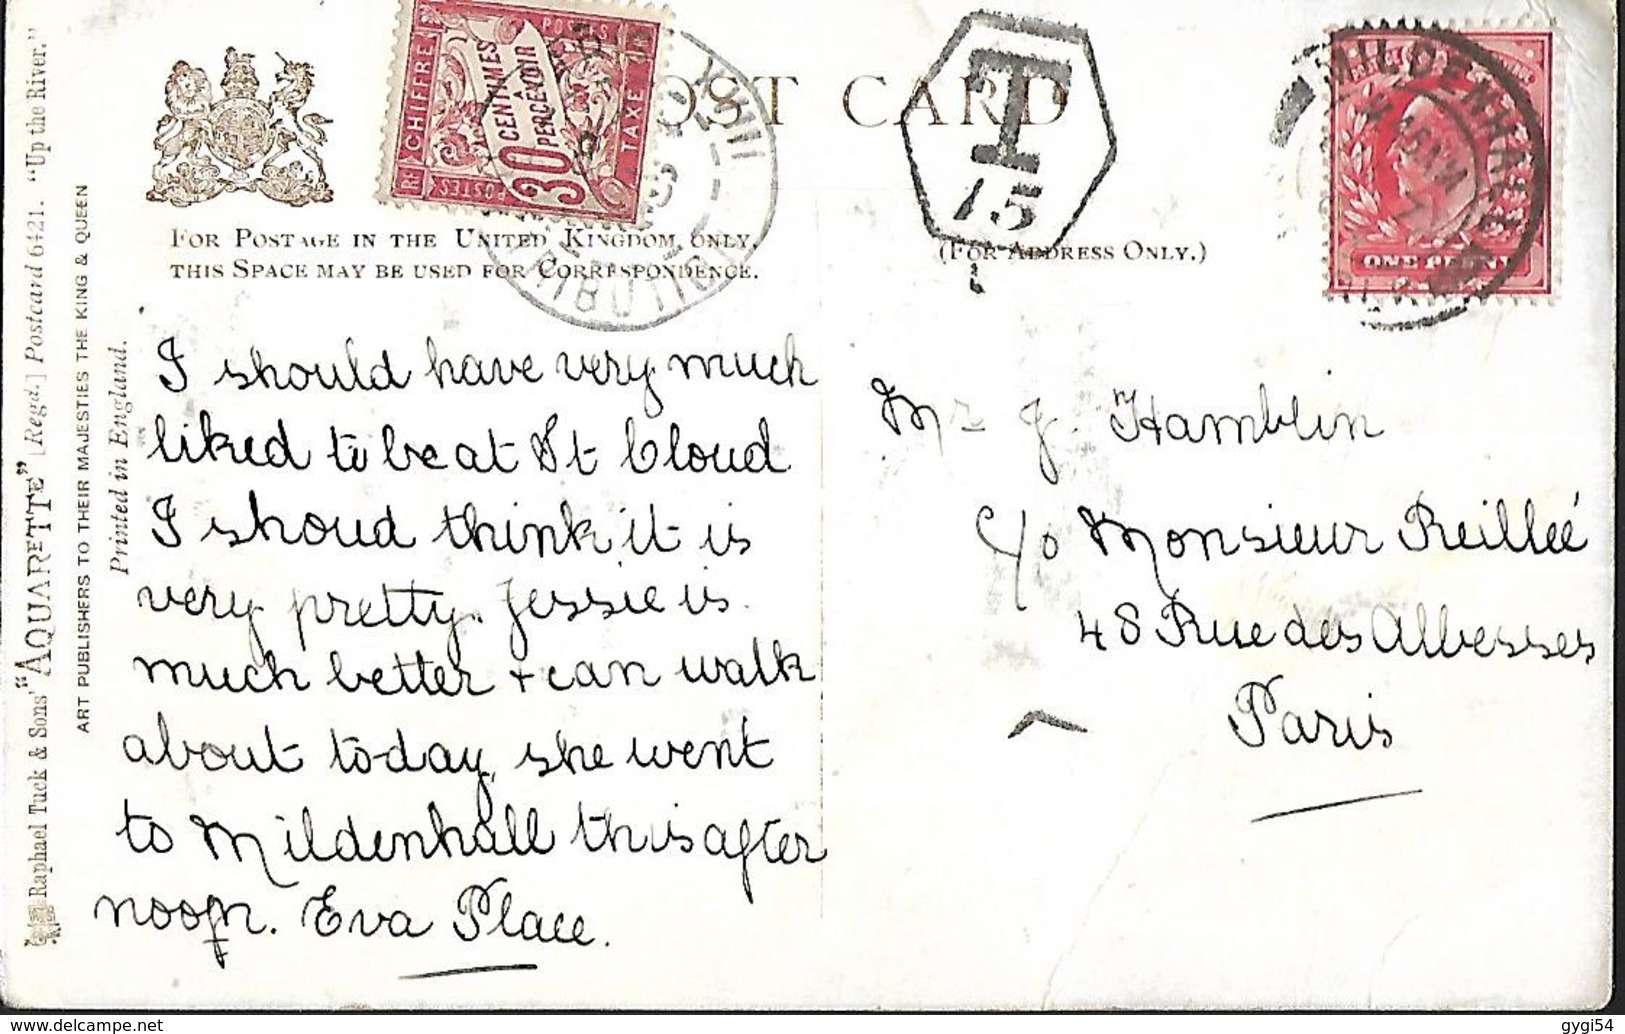 POSTES
CHIFFRE
30 CENTIMES
À
PERCEVOIR
TAXE
RF
POSTES
POST CARD
T
15
MILDENHALL
ONE PENNY
FOR POSTAGE IN THE UNITED KINGDOM ONLY,
THIS SPACE MAY BE USED FOR CORRESPONDENCE.
(FOR ADDRESS ONLY.)
Raphael Tuck & Sons' "AQUARETTE" [Regd.] Postcard 6421. "Up the River."
ART PUBLISHERS TO THEIR MAJESTIES THE KING & QUEEN
Printed in England.
I should have very much
liked to be at St Cloud
I shoud think it is
very pretty. Jessie is
much better + can walk
about today, she went
to Mildenhall this after
noon. Eva Place.
Mr J. Hamblin
c/o Monsieur Reilleé
48 Rue des Abbesses
Paris
delcampe.net
gygi54